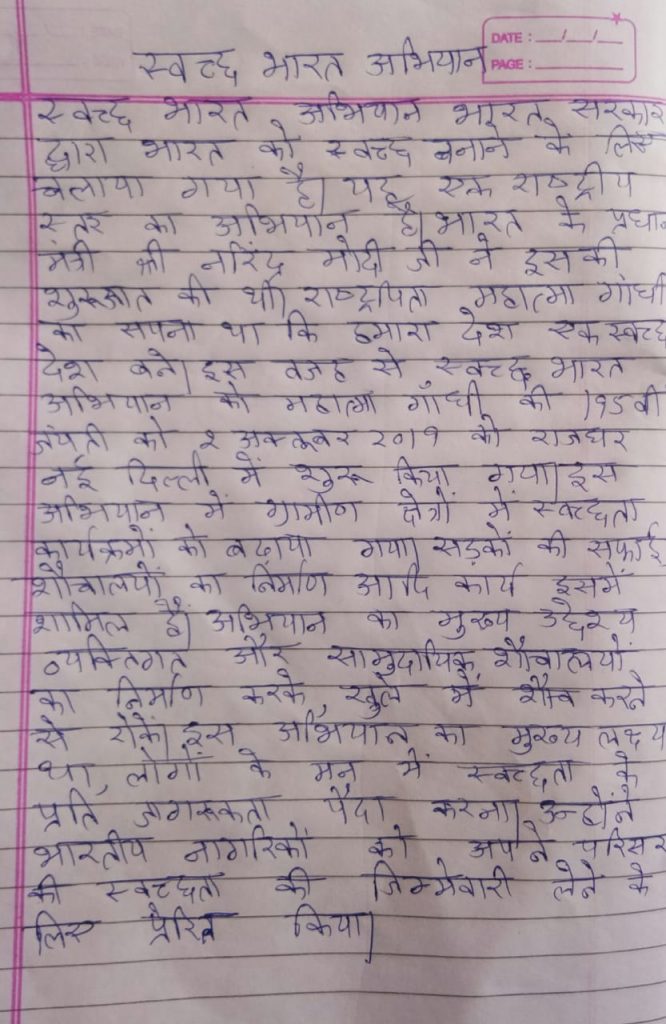 DATE : __/__/__
PAGE : ______
स्वच्छ भारत अभियान
स्वच्छ भारत अभियान भारत सरकार
द्वारा भारत को स्वच्छ बनाने के लिए
चलाया गया है। यह एक राष्ट्रीय
स्तर का अभियान है। भारत के प्रधान
मंत्री श्री नरिंद्र मोदी जी ने इसकी
शुरूआत की थी। राष्ट्रपिता महात्मा गांधी
का सपना था कि हमारा देश एक स्वच्छ
देश बने। इस वजह से स्वच्छ भारत
अभियान को महात्मा गाँधी की 195 वी
जंयती को २ अक्तूबर २०१९ को राजघर
नई दिल्ली में शुरू किया गया। इस
अभियान में ग्रामीण क्षेत्रों में स्वच्छता
कार्यक्रमों को बढ़ाया गया। सड़कों की सफाई,
शौचालयों का निर्माण आदि कार्य इसमें
शामिल है। अभियान का मुख्य उद्देश्य
व्यक्तिगत और सामुदायिक शौचालयों
का निर्माण करके, खुले में शौच करने
से रोकें। इस अभियान का मुख्य लक्ष्य
था, लोगों के मन में स्वच्छता के
प्रति जागरूकता पैदा करना। उन्होंने
भारतीय नागरिकों को अपने परिसर
की स्वच्छता की जिम्मेवारी लेने के
लिए प्रेरित किया।